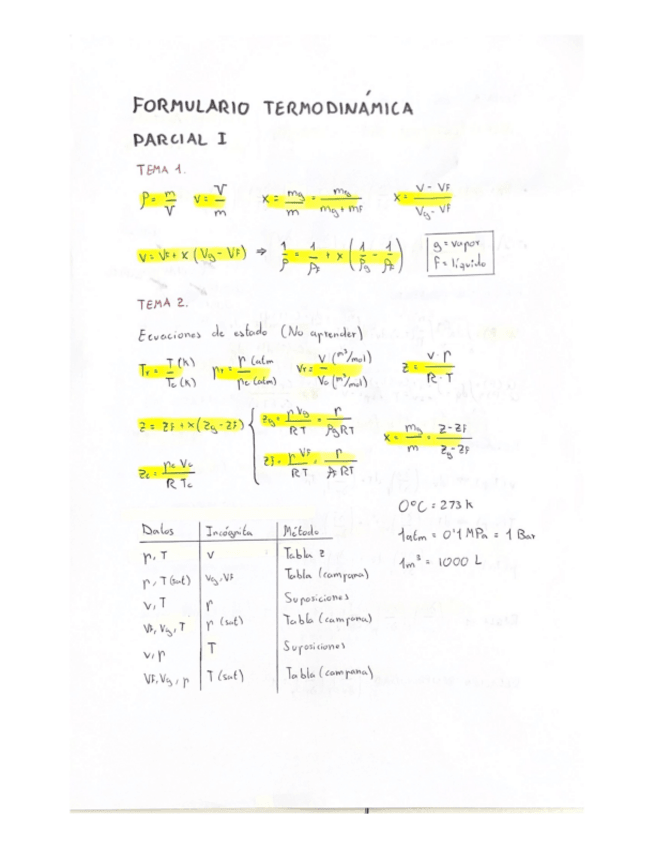 FORMULARIO TERMODINÁMICA
PARCIAL I
TEMA 1.
ρ = m/V   v = V/m   x = mg/m = mg/(mg + mF)   x = (v - vF)/(vg - vF)
v = vF + x (vg - vF) ⇒ 1/ρ = 1/ρF + x (1/ρg - 1/ρF)
g = vapor
F = líquido
TEMA 2.
Ecuaciones de estado (No aprender)
Tr = T (K)/Tc (K)   pr = p (atm/pc (atm)   vr = v (m³/mol)/vc (m³/mol)   z = v · p/R · T
z = zF + x (zg - zF)   zg = p vg/RT = p/ρg RT   x = mg/m = (z - zF)/(zg - zF)
zc = pc vc/R Tc   zF = p vF/RT = p/ρF RT
0°C = 273 K
1 atm = 0'1 MPa = 1 Bar
1m³ = 1000 L
Datos   Incógnita   Método
p, T   v   Tabla z
p, T (sat)   vg, vF   Tabla (campana)
v, T   p   Suposiciones
vF, vg, T   p (sat)   Tabla (campana)
v, p   T   Suposiciones
vF, vg, p   T (sat)   Tabla (campana)